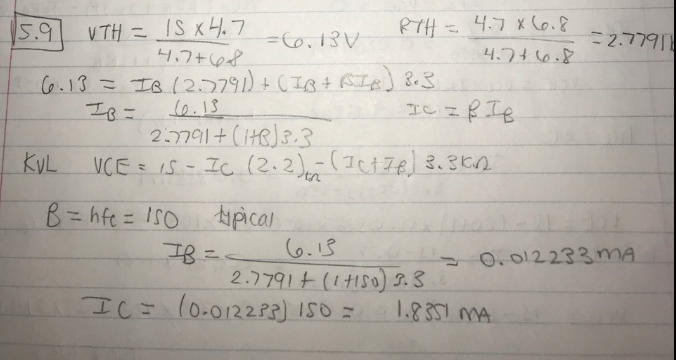 5.9 VTH = 15 x 4.7 / 4.7+6.8 = 6.13V RTH = 4.7 x 6.8 / 4.7+6.8 = 2.7791k
6.13 = IB (2.7791) + (IB + βIB) 3.3
IB = 6.13 / 2.7791 + (1+β)3.3 IC = β IB
KVL VCE = 15 - IC (2.2) - (IC+IB) 3.3KΩ
B = hfe = 150 typical
IB = 6.13 / 2.7791 + (1+150) 3.3 = 0.012233 mA
IC = (0.012233) 150 = 1.8351 mA